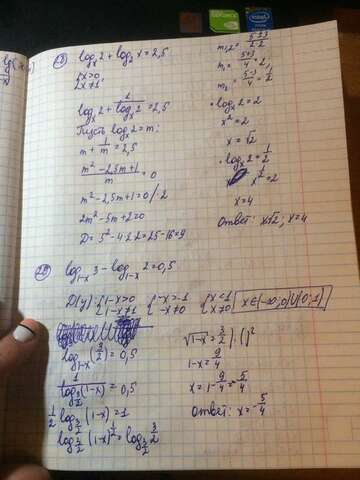 28) log_x 2 + log_2 x = 2,5
{x>0
{x≠1
log_x 2 + 1/log_x 2 = 2,5
Пусть log_x 2 = m:
m + 1/m = 2,5
(m² - 2,5m + 1)/m = 0
m² - 2,5m + 1 = 0 /·2
2m² - 5m + 2 = 0
D = 5² - 4·2·2 = 25 - 16 = 9
m_1,2 = (5±3)/(2·2)
m_1 = (5+3)/4 = 2;
m_2 = (5-3)/4 = 1/2
• log_x 2 = 2
x² = 2
x = √2
• log_x 2 = 1/2
x^(1/2) = 2
x = 4
Ответ: x√2, x=4
29) log_(1-x) 3 - log_(1-x) 2 = 0,5
D(y): {1-x>0 {-x>-1 {x<1
{1-x≠1 {-x≠0 {x≠0
x∈(-∞;0)U(0;1)
log_(1-x) (3/2) = 0,5
1/log_(3/2) (1-x) = 0,5
1/2 log_(3/2) (1-x) = 1
log_(3/2) (1-x)^(1/2) = log_(3/2) 3/2
√(1-x) = 3/2 | ·()²
1-x = 9/4
x = 1 - 9/4 = -5/4
Ответ: x = -5/4